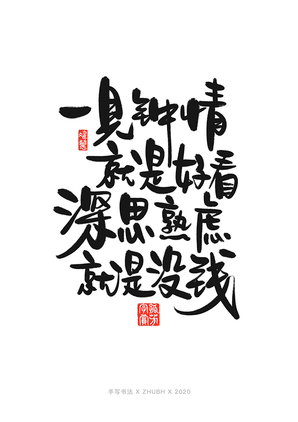 一見钟情
就是好看
深思熟虑
就是没钱
手写书法 X ZHUBH X 2020